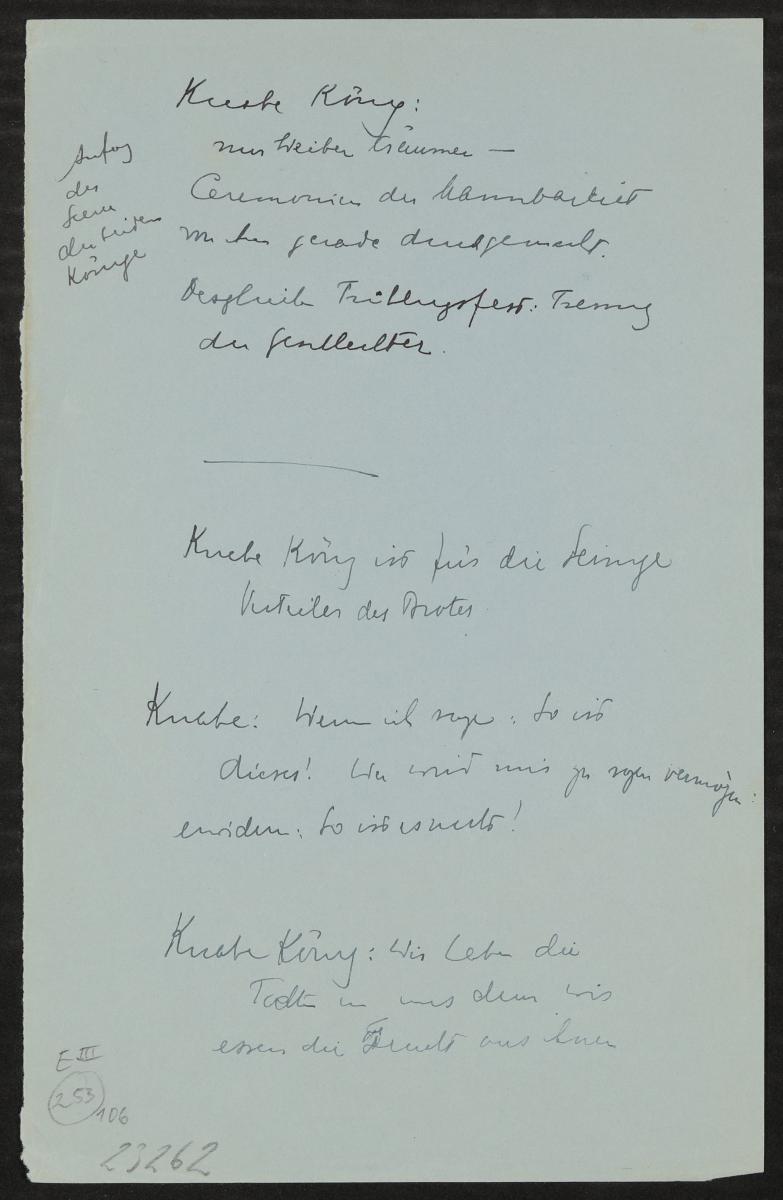 Knabe König:
nur Weiber träumen —
Ceremonien der Mannbarkeit
gerade durchgemacht.
Anfang
der
Scene
der beiden
Könige
Desgleichen Frühlingsfest: Trennung
der Geschlechter.
Knabe König ist für die Seinige
Verteiler des Brotes
Knabe: Wenn ich sage: So ist
dieses! Wer wird mir zu sagen vermögen:
erwidern: So ist es nicht!
Knabe König: Wir haben die
Todten in uns denn wir
essen die Frucht aus ihnen
E III
253
106
23262